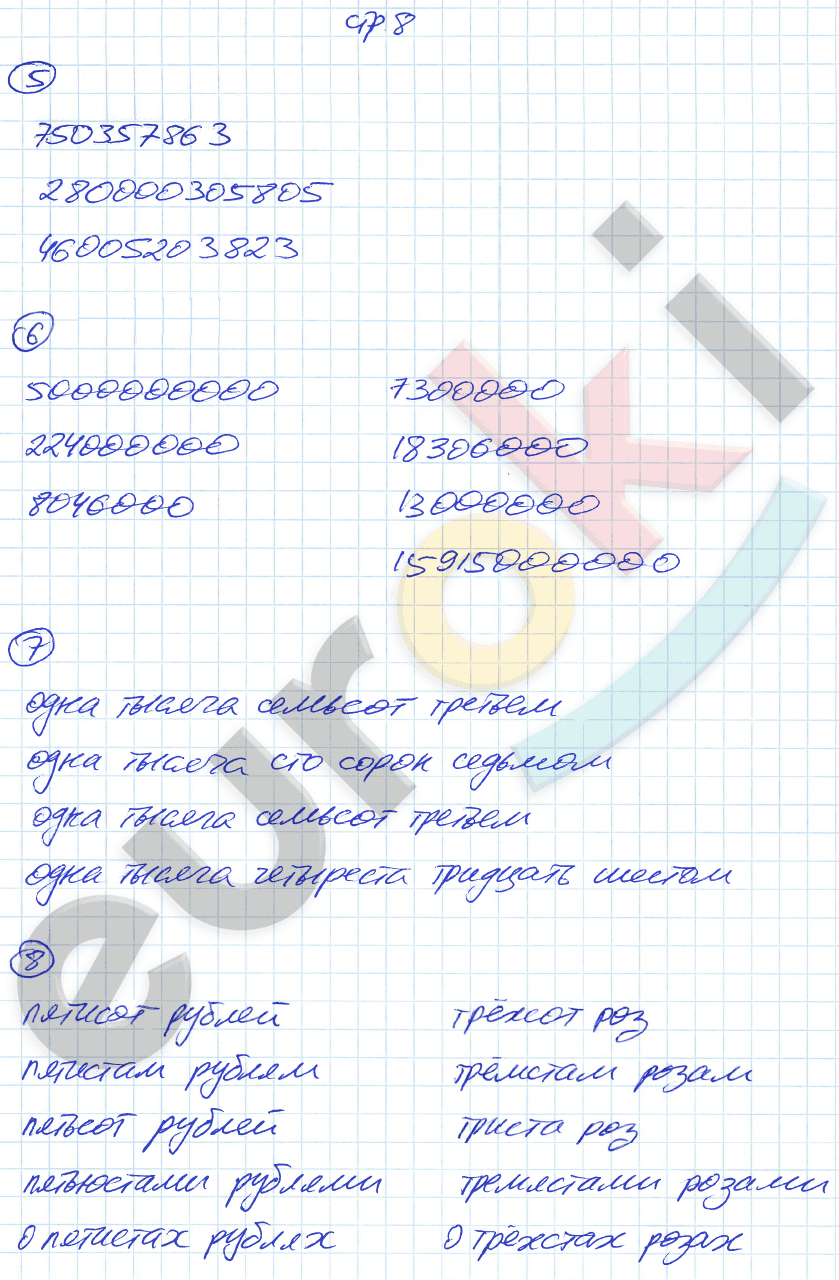 стр 8
5
750357863
2800000305805
46005203823
6
5000000000 7300000
224000000 18306000
8046000 13000000
15915000000
7
одна тысяча семьсот третьем
одна тысяча сто сорок седьмом
одна тысяча семьсот третьем
одна тысяча четыреста тридцать шестом
8
пятисот рублей трёхсот роз
пятистам рублям трёмстам розам
пятьсот рублей триста роз
пятьюстами рублями тремястами розами
о пятистах рублях о трёхстах розах
euroki